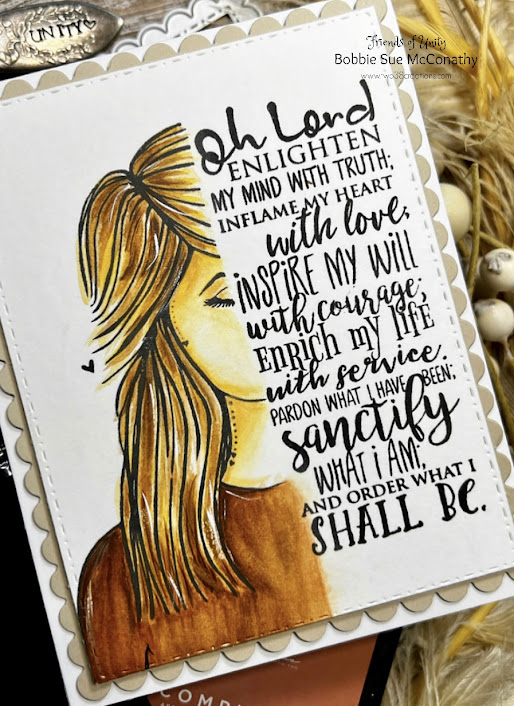 UNITY
Friends of Unity
Bobbie Sue McConathy
Oh Lord
ENLIGHTEN
MY MIND WITH TRUTH;
INFLAME MY HEART
with love;
INSPIRE MY WILL
with courage;
ENRICH MY LIFE
with service.
PARDON WHAT I HAVE BEEN;
sanctify
WHAT I AM;
AND ORDER WHAT I
SHALL BE.